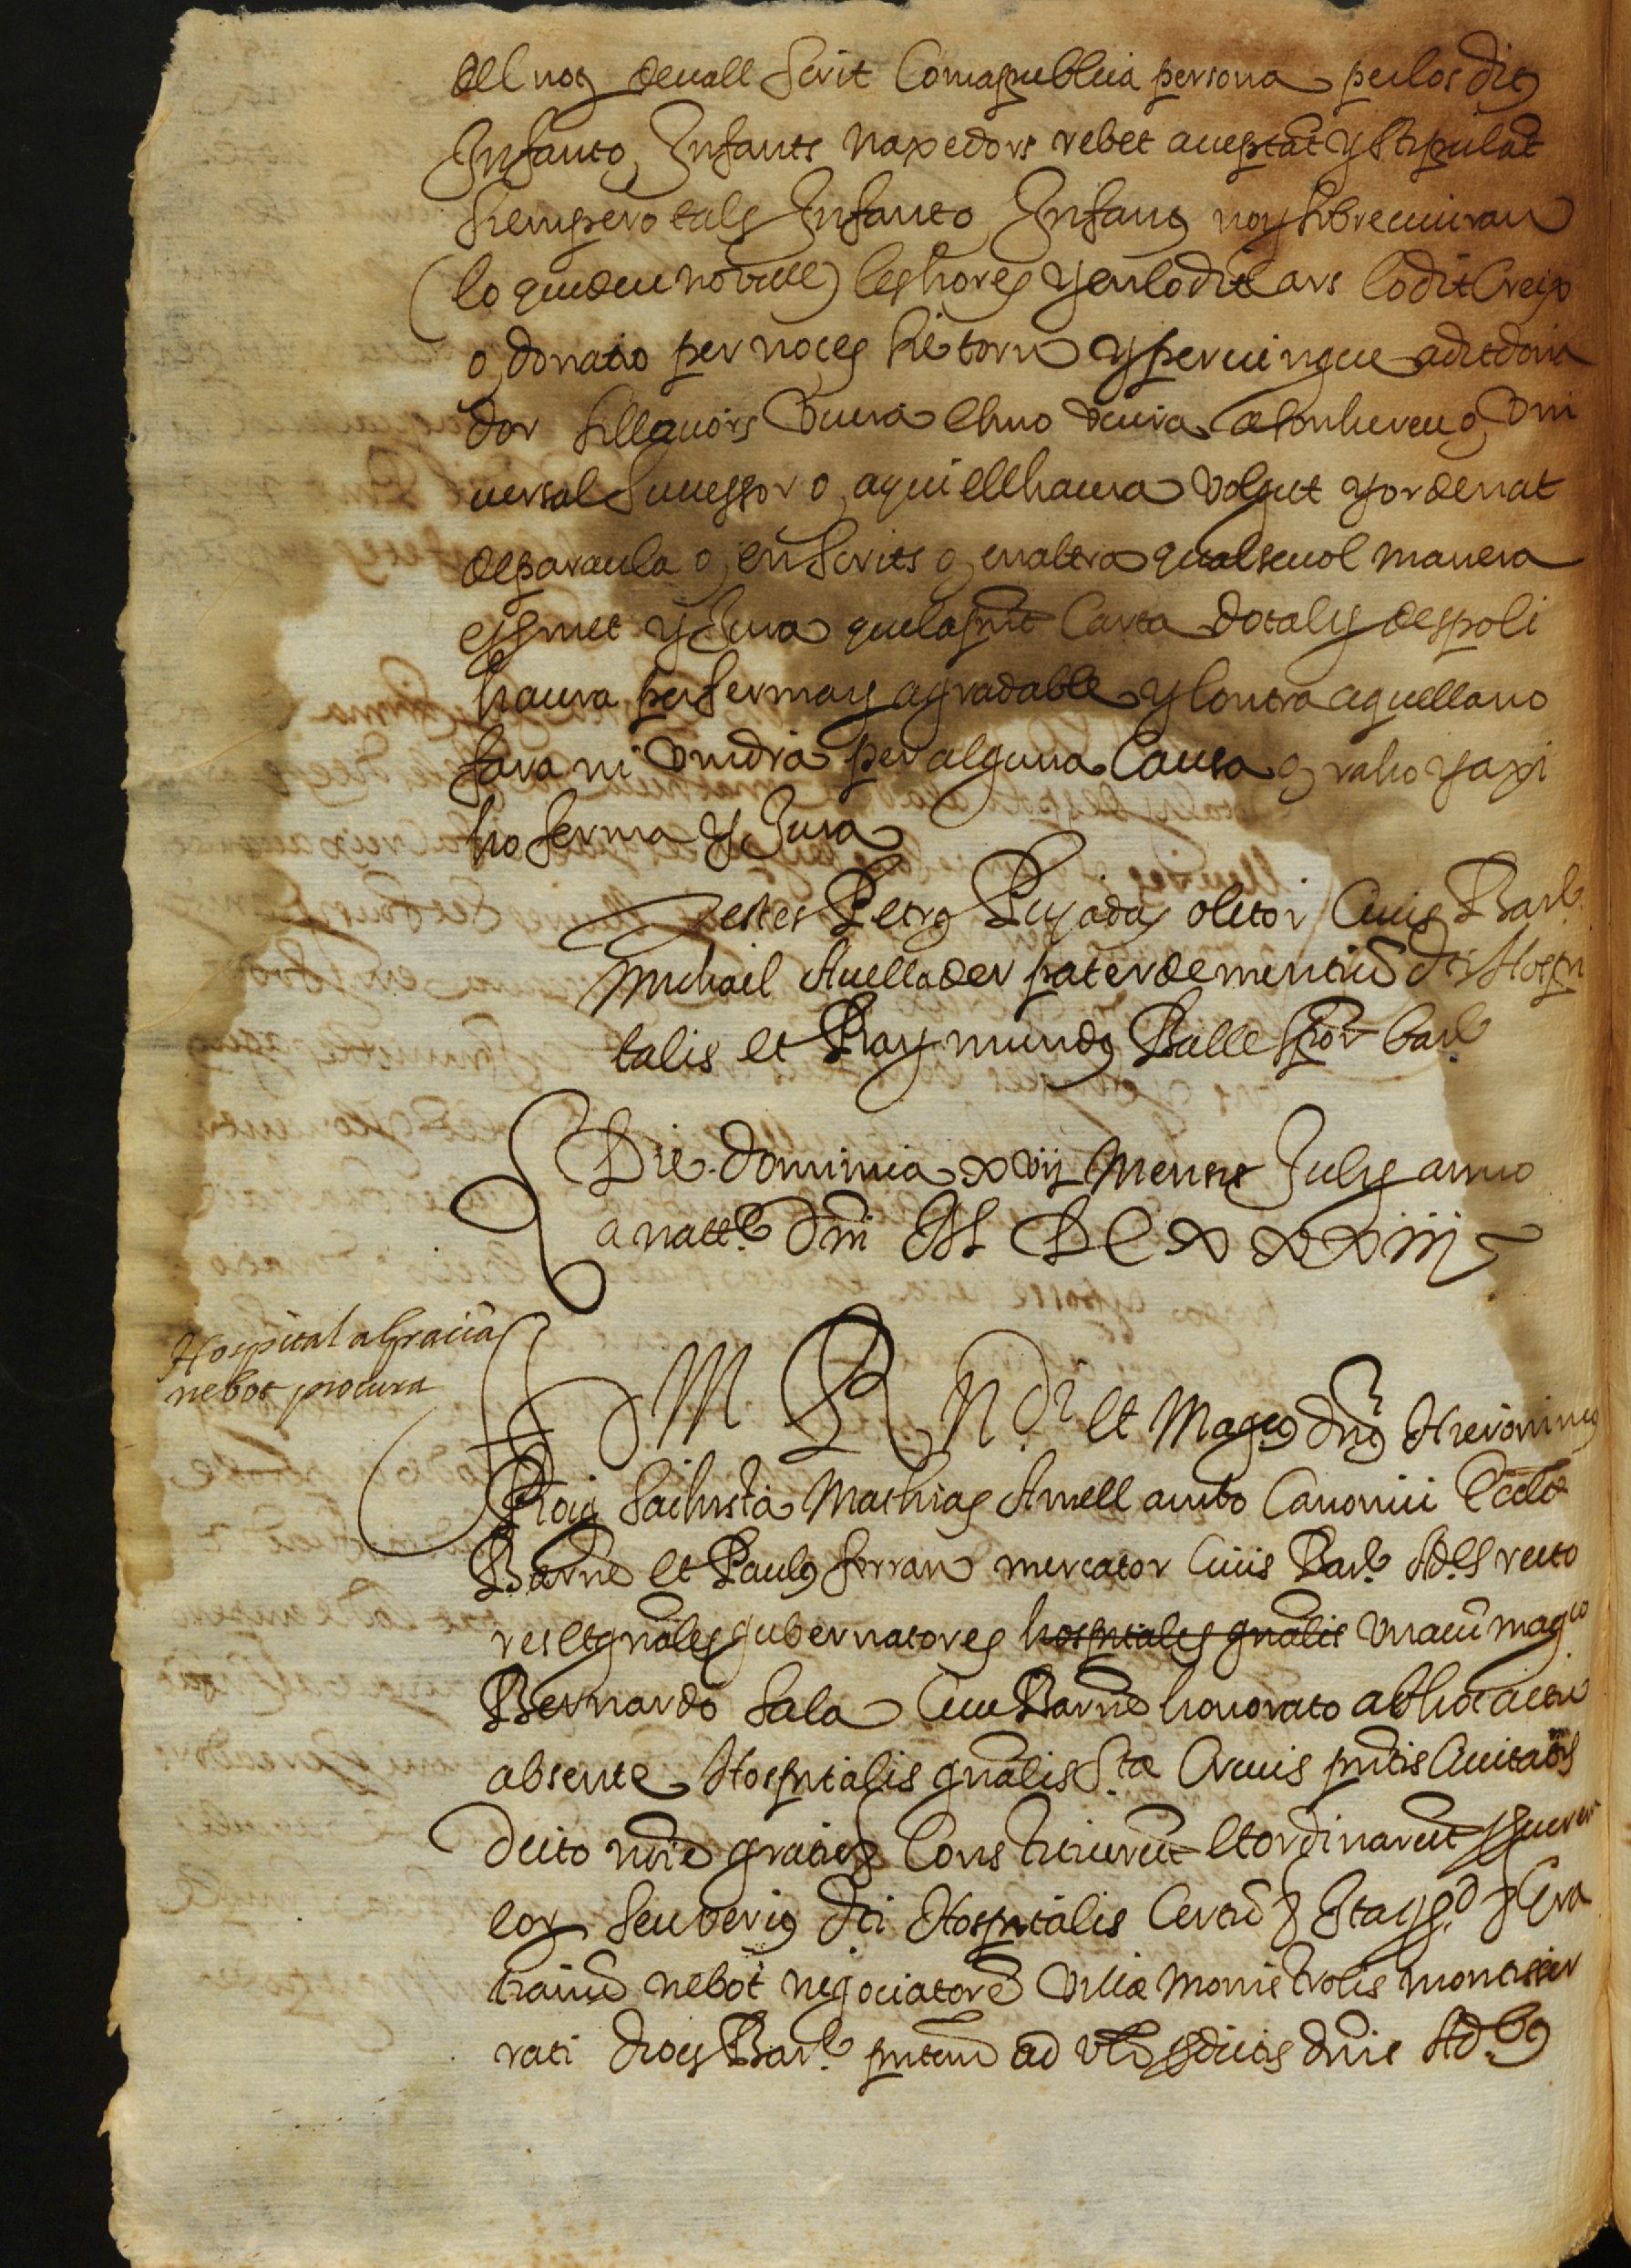 del not. devall scrit com a publica persona per los dits
Infant o Infants naxedors rebet acceptāt y stipulāt
si empero tals Infant o Infants noy sobreviuran
(lo que deu no vulle) les hores y en lo dit cas lo dit creix
o donatio per noces si e torn y pervingue a dit dona
dor si llavors viura e si no viura a son hereu o uni
versal successor o, a qui ell haura volgut y ordenat
de paraula o, en scrits o, en altra qualsevol manera
e y met y Jura que la pñt Carta dotal y de espoli
haura per ferma y agradable y contra aquella no
fara ni vindra per alguna causa o, raho y axi
ho ferma y Jura
Testes Petrus Pujadas olitor Civis Barᵉ
Michael Avellader pater dementiū dti Hospi
talis et Raymundus Balle scror barᵉ
Die dominica xvij mensis Julij anno
a natt.e Dni M DC xxxiiij
Hospital a Gracià
nebot procura
M R Ndi et Magcus Dñs Hieronimus
Roig Sachrista Mathias Amell ambo Canonici Eccliæ
Barnē et Paulus ferran mercator Civis Barᵉ Ad.es recto
res et gñales gubernatores hospitalis gñalis una cū magco
Bernardo Sala Cive Barnē honorato ab hoc actu
absente Hospitalis gñalis Stæ Crucis pñtis Civitatis
De cito nrē gratis Constituerūt et ordinarūt
lox seu verius dti Hospitalis Certū Ita qd Gra
tianū nebot negociatorē villæ monistrolis montisser
rati diocs Barᵉ pñtem ad dictis dñis Ad.bus